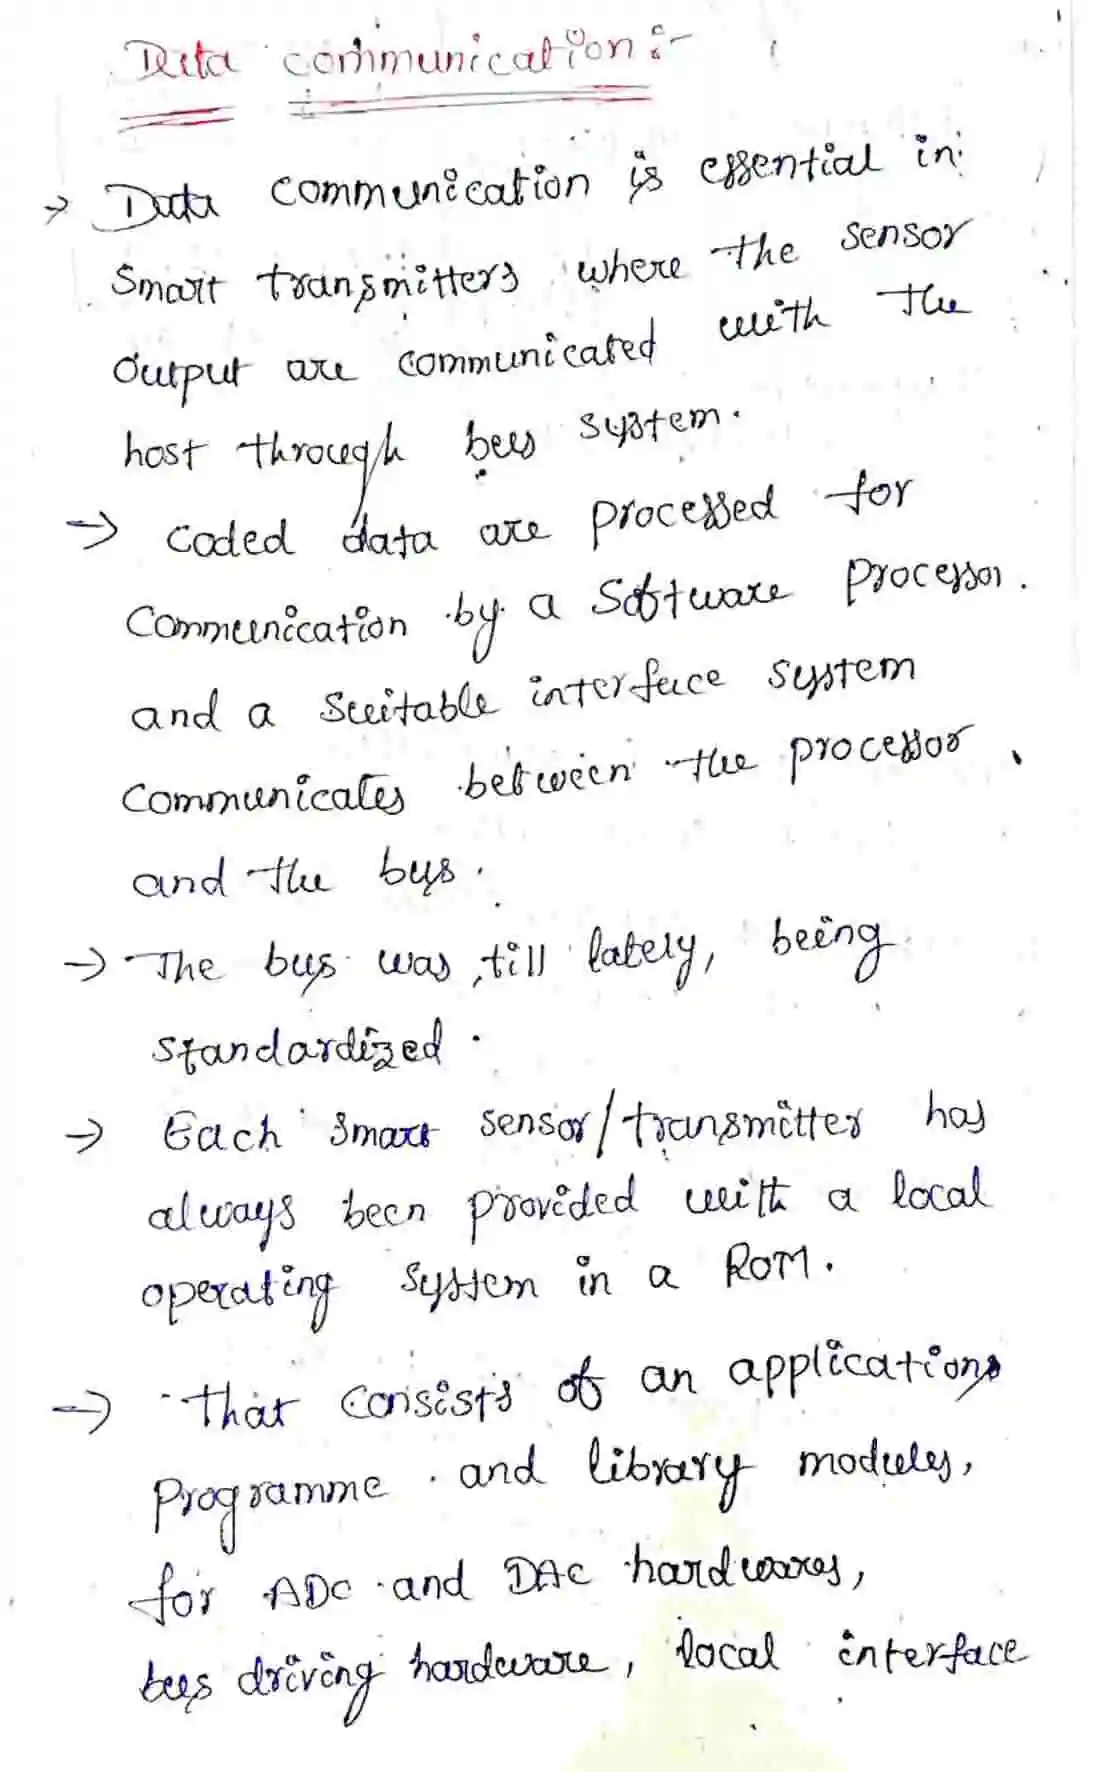 Data communication:-
→ Data communication is essential in
smart transmitters where the sensor
output are communicated with the
host through bus system.
→ coded data are processed for
communication by a software processor.
and a suitable interface system
communicates between the processor
and the bus.
→ The bus was, till lately, being
standardized.
→ Each smart sensor/transmitter has
always been provided with a local
operating system in a ROM.
→ That consists of an applications
programme and library modules,
for ADC and DAC hardwares,
bus driving hardware, local interface